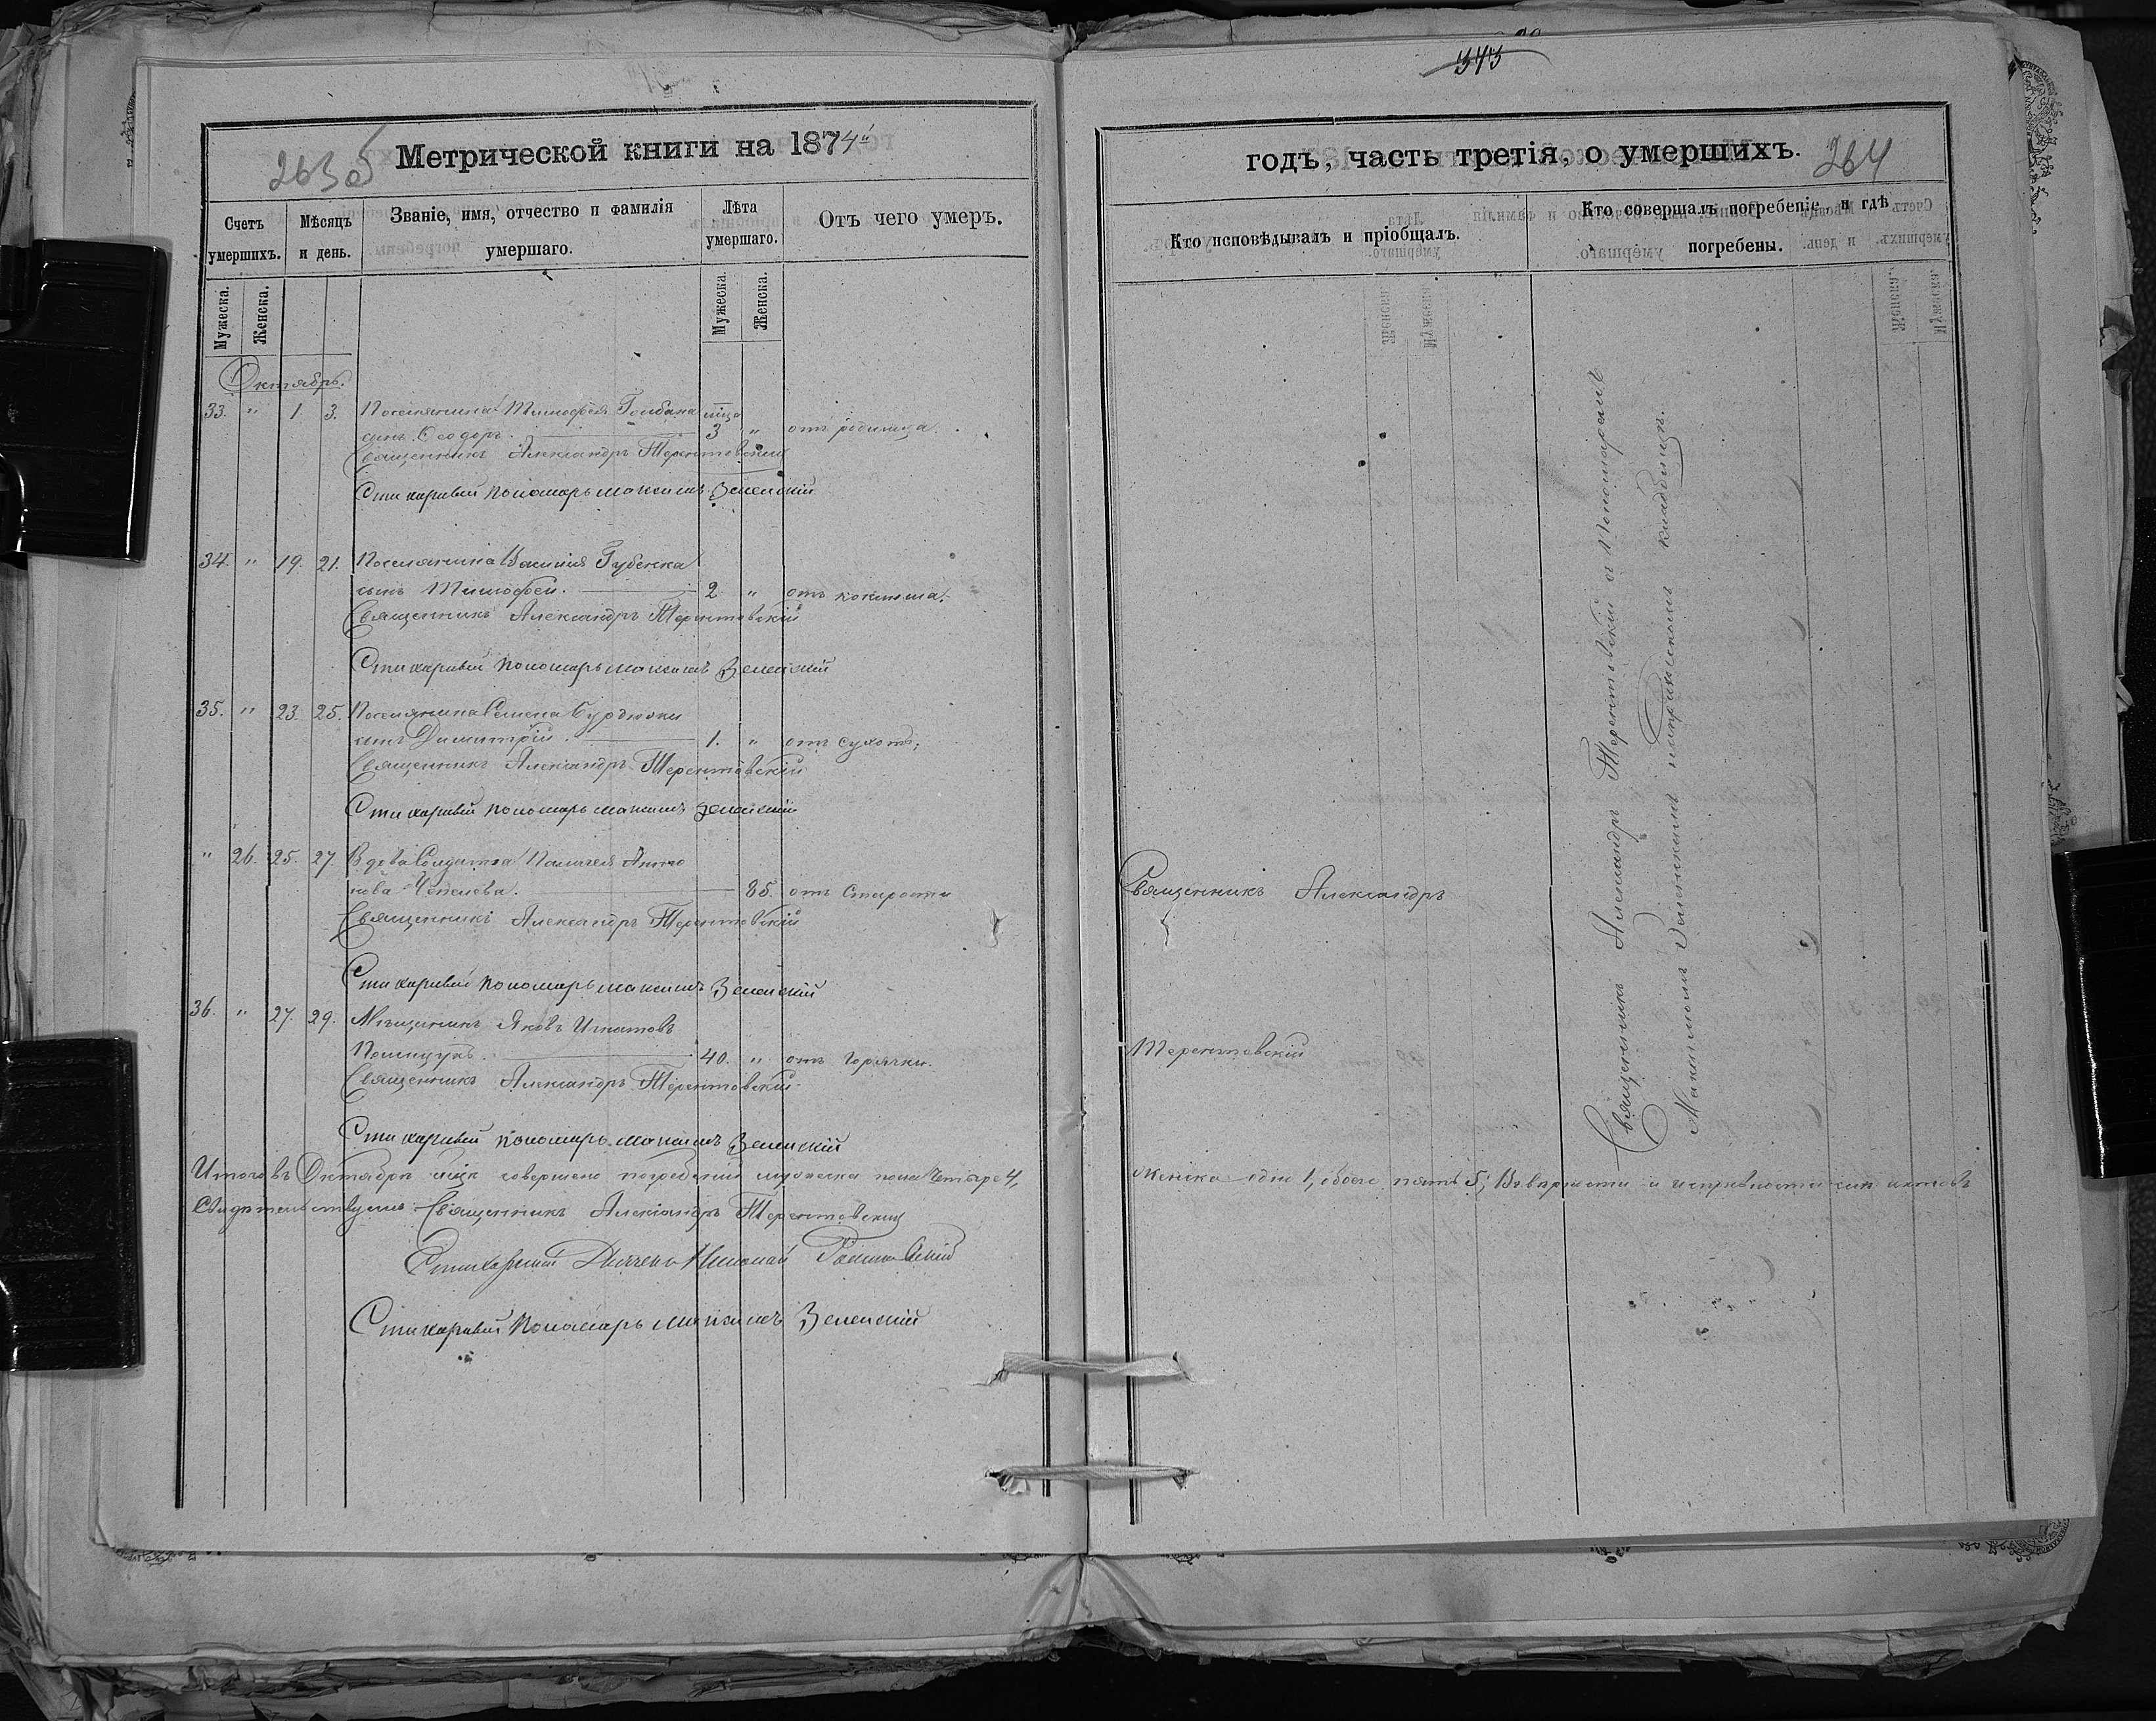 343
Метрической книги на 1874й
263 об
Счетъ умершихъ.
Мѣсяцъ и день.
Званіе, имя, отчество и фамилія умершаго.
Лѣта умершаго.
Отъ чего умеръ.
Мужеска.
Женска.
Мужеска.
Женска.
Октябрь.
33. " 1. 3. Поселянина Тимофея Гомбана мца
сынъ Ѳеодоръ. 3 " отъ родимца.
Священникъ Александръ Терентовскій
Стихарный пономарь Максимъ Зеленскій
34. " 19. 21. Поселянина Василія Губенка
сынъ Тимофей. 2 " отъ коклюша.
Священникъ Александръ Терентовскій
Стихарный пономарь Максимъ Зеленскій
35. " 23. 25. Поселянина Семена Бурдюжи
сынъ Димитрій. 1. " отъ сухотъ.
Священникъ Александръ Терентовскій
Стихарный пономарь Максимъ Зеленскій
" 26. 25. 27. Вдова Солдатка Пелагея Анто
нова 85. отъ Старости
Священникъ Александръ Терентовскій
Стихарный пономарь Максимъ Зеленскій
36. " 27. 29. Мѣщанинъ Яковъ Игнатовъ
Полищукъ. 40. " отъ Горячки.
Священникъ Александръ Терентовскій
Стихарный пономарь Максимъ Зеленскій
Итого въ Октябрѣ мцѣ совершено погребеній мужеска пола Четыре 4,
Свидѣтельствуемъ Священникъ Александръ Терентовскій
Стихарный Дьячекъ Николай
Стихарный пономарь Максимъ Зеленскій
годъ, часть третія, о умершихъ.
264
Кто исповѣдывалъ и пріобщалъ.
Кто совершалъ погребеніе, и гдѣ погребены.
Священникъ Александръ
Терентовскій
Священникъ Александръ Терентовскій съ Пономаремъ
Максимомъ Зеленскимъ на приходскомъ кладбищѣ.
женска одно 1, обоего пять 5; Въ вѣрности и исправности сихъ актовъ